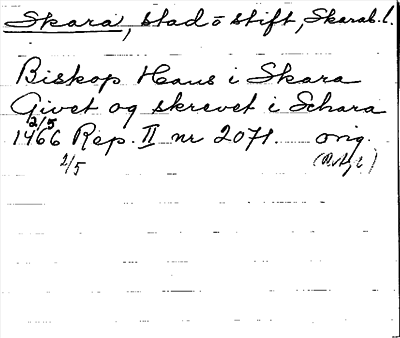 Skara, stad o stift, Skarab. l.
Biskop Hans i Skara
Givet og skrevet i Schara
2/5
1466 Rep. II nr 2071. orig.
2/5